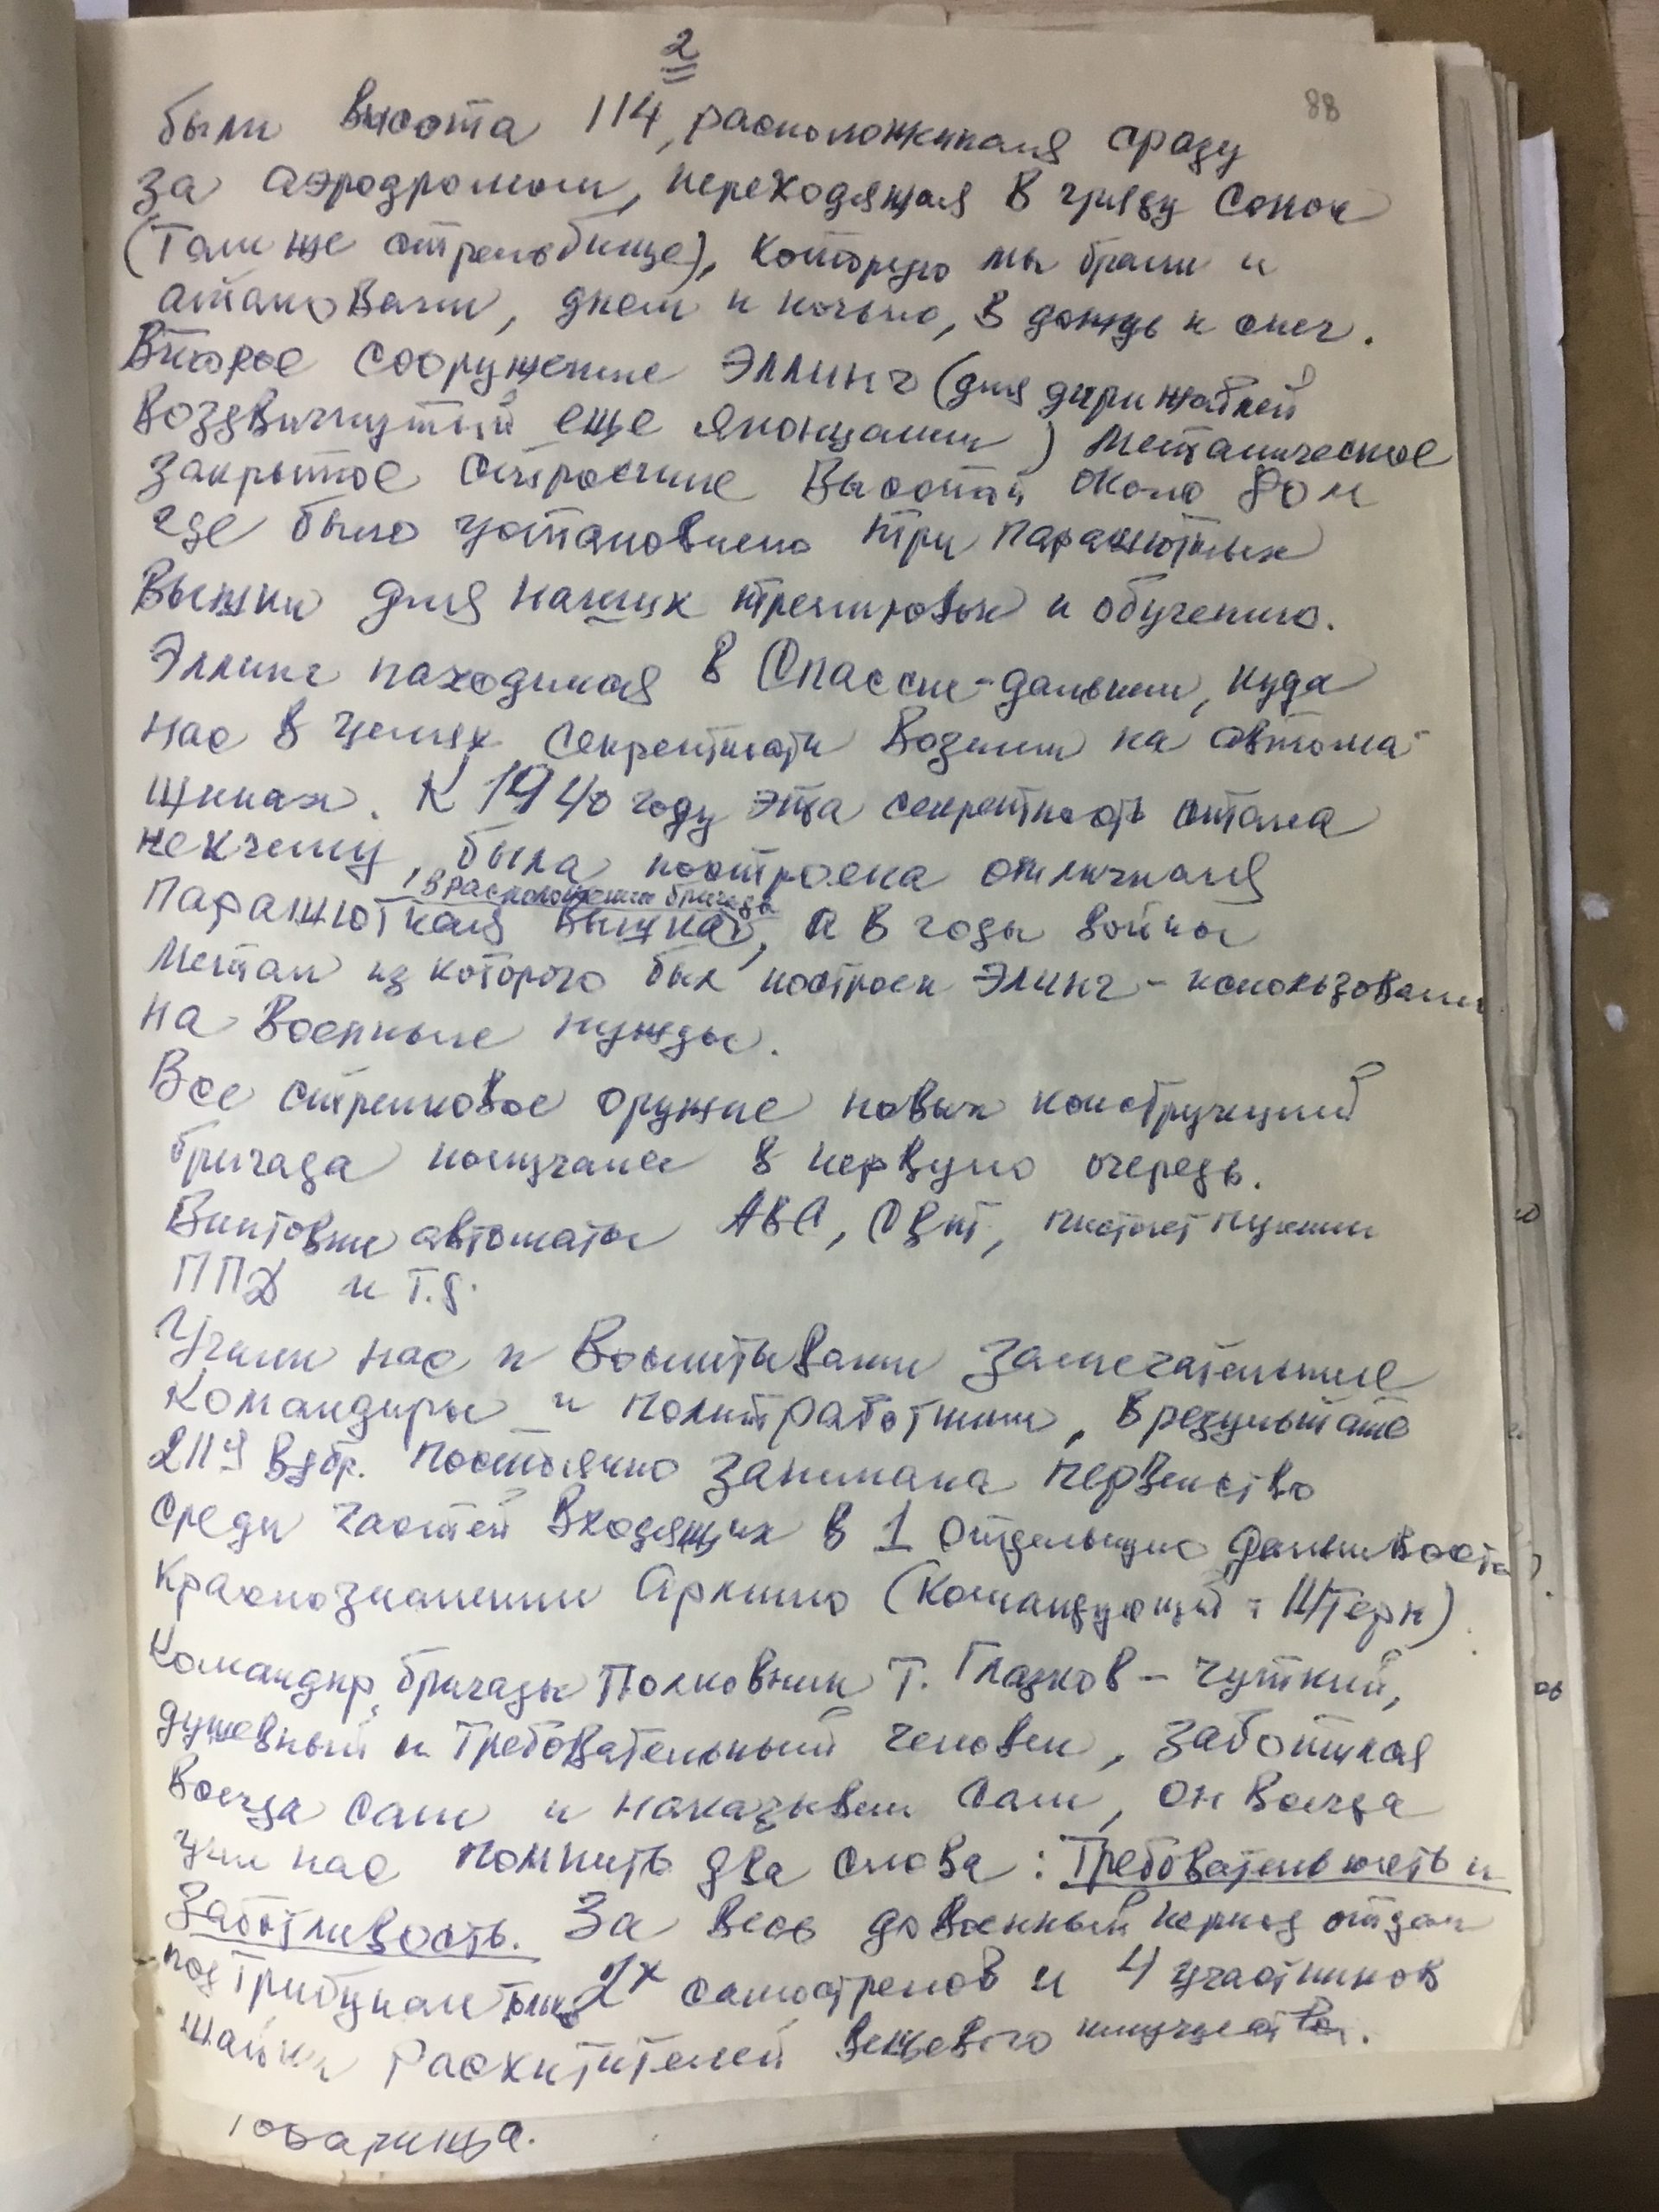 2
88
были высота 114, расположенная сразу
за аэродромом, переходящая в гряду сопок
(там же стрельбище), которую мы брали и
атаковали, днем и ночью, в дождь и снег.
Второе сооружение Эллинг (для дирижаблей
воздвигнутый еще японцами) металическое
закрытое строение высотой около 80 м
где было установлено три парашютных
вышки для наших тренировок и обучению.
Эллинг находился в Спасске-дальнем, куда
нас в целях секретности возили на автома-
шинах. К 1940 году эта секретность стала
некчему, была построена отличная
в расположении бригады
парашютная вышка, а в годы войны
метал из которого был построен Элинг - использовали
на военные нужды.
Все стрелковое оружие новых конструкций
бригада получала в первую очередь.
Винтовки автоматы АВС, СВТ, пистолет пулемты
ППД и т.д.
Учили нас и воспитывали замечательные
командиры и политработники, в результате
211я вдбр. постоянно занимала первенство
среди частей входящих в 1 отдельную Дальневосто
краснознаменную Армию (командующий т Штерн)
Командир бригады полковник т. Глазков - чуткий,
душевный и требовательный человек, заботился
всегда сам и наказывал сам, он всегда
учил нас помнить два слова: Требовательность и
Заботливость. За весь довоенный период отдал
под трибунал только 2х самострелов и 4 участников
шайки расхитителей вещевого имущества.
товарища.